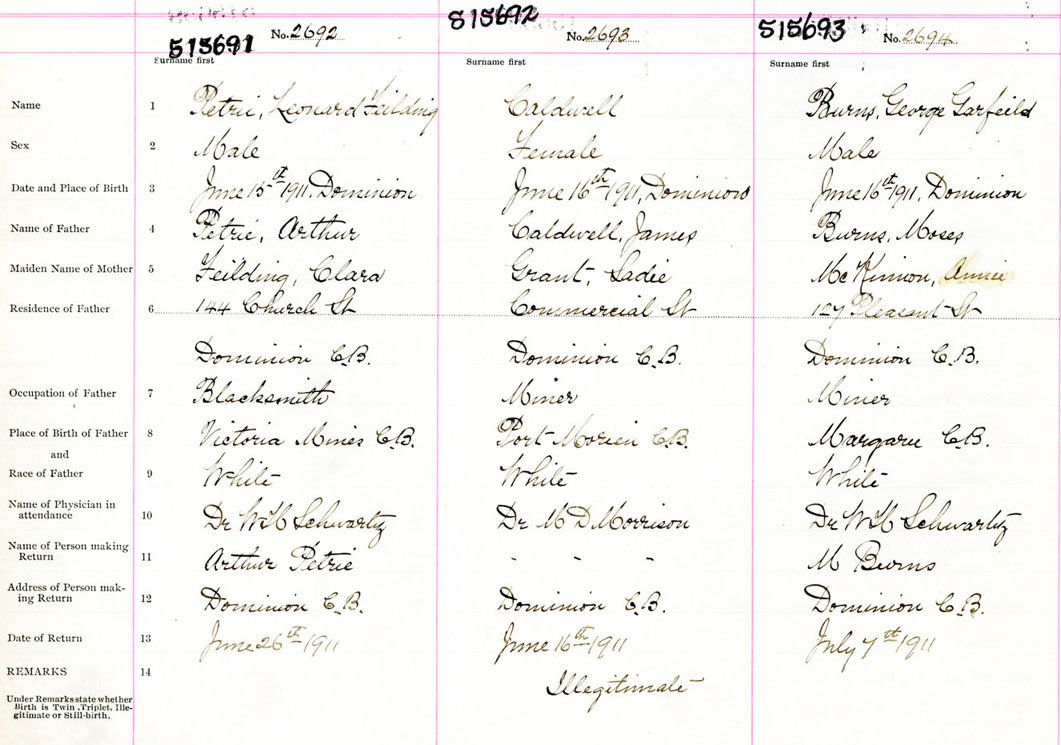 515691 No. 2692 515692 No. 2693 515693 No. 2694
Surname first Surname first Surname first
Name 1 Petrie, Leonard Feilding Caldwell Burns, George Garfeild
Sex 2 Male Female Male
Date and Place of Birth 3 June 15th 1911, Dominion June 16th 1911, Dominion June 16th 1911, Dominion
Name of Father 4 Petrie, Arthur Caldwell, James Burns, Moses
Maiden Name of Mother 5 Feilding, Clara Grant, Sadie McKinnon, Annie
Residence of Father 6 144 Church St Commercial St 127 Pleasant St
Dominion C.B. Dominion C.B. Dominion C.B.
Occupation of Father 7 Blacksmith Miner Miner
Place of Birth of Father 8 Victoria Mines C.B. Port Morien C.B. Margaree C.B.
and
Race of Father 9 White White White
Name of Physician in
attendance 10 Dr W H Schwartz Dr M D Morrison Dr W H Schwartz
Name of Person making
Return 11 Arthur Petrie - - - M Burns
Address of Person mak-
ing Return 12 Dominion C.B. Dominion C.B. Dominion C.B.
Date of Return 13 June 26th 1911 June 16th 1911 July 7th 1911
REMARKS 14 Illegitimate
Under Remarks state whether
Birth is Twin, Triplet, Ille-
gitimate or Still-birth.